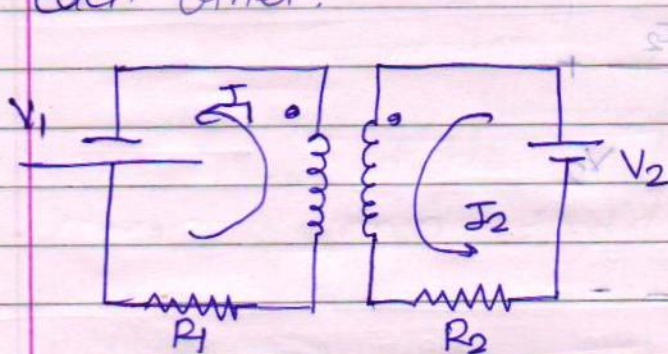 each other.
V1
I1
I2
V2
R1
R2